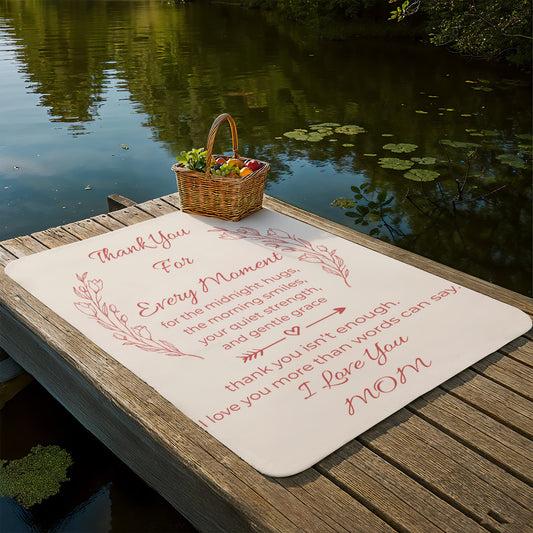 Thank You
For
Every Moment
for the midnight hugs,
the morning smiles,
your quiet strength,
and gentle grace
thank you isn't enough.
I love you more than words can say.
I Love You
MOM